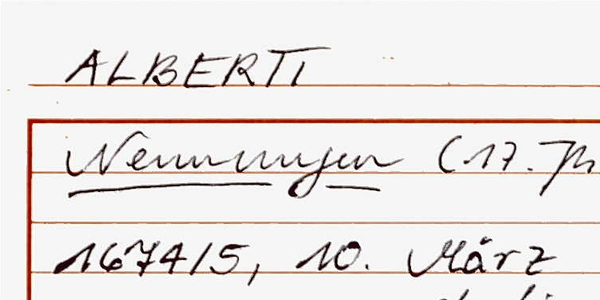 ALBERTI
Nenningen (17. Jh
1674/5, 10. März